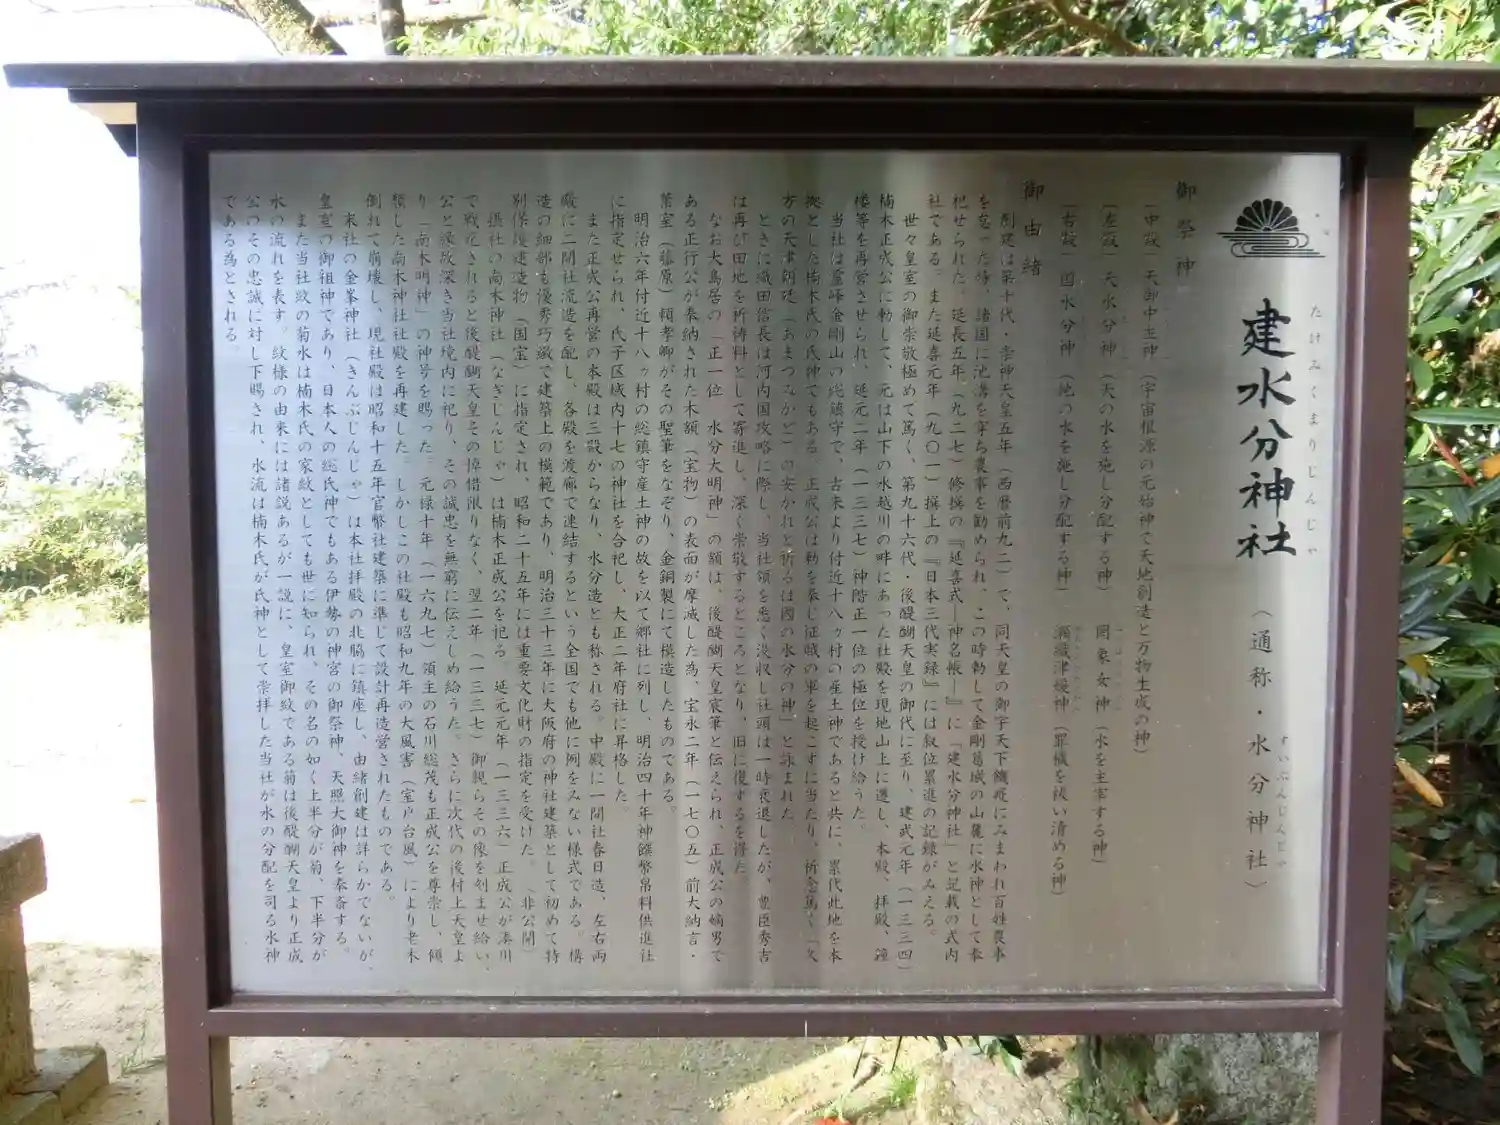 たけみくまりじんじゃ
建水分神社
すいぶんじんじゃ
（通称・水分神社）
御祭神
〔中殿〕天御中主神（宇宙根源の元始神で天地創造と万物生成の神）
〔左殿〕天水分神（天の水を施し分配する神）　罔象女神（水を主宰する神）
〔右殿〕国水分神（地の水を施し分配する神）　瀬織津媛神（罪穢を祓い清める神）
御由緒
創建は第十代・崇神天皇五年（西暦前九二）で、同天皇の御宇天下饑疫にみまわれ百姓農事
を怠った時、諸国に池溝を穿ち農事を勧められ、この時勅して金剛葛城の山麓に水神として奉
祀せられた。延長五年（九二七）修撰の『延喜式―神名帳―』に「建水分神社」と記載の式内
社である。また延喜元年（九〇一）撰上の『日本三代実録』には叙位累進の記録がみえる。
世々皇室の御崇敬極めて篤く、第九十六代・後醍醐天皇の御代に至り、建武元年（一三三四）
楠木正成公に勅して、元は山下の水越川の畔にあった社殿を現地山上に遷し、本殿、拝殿、鐘
楼等を再営させられ、延元二年（一三三七）神階正一位の極位を授け給うた。
当社は霊峰金剛山の総鎮守で、古来より付近十八ヶ村の産土神であると共に、累代此地を本
拠とした楠木氏の氏神でもある。正成公は勅を奉じ征賊の軍を起こすに当たり、祈念篤く「久
方の天津朝廷（あまつみかど）の安かれと祈るは国の水分の神」と詠まれた。
ときに織田信長は河内国攻略に際し、当社領を悉く没収し社頭は一時衰退したが、豊臣秀吉
は再び田地を祈祷料として寄進し、深く崇敬するところとなり、旧に復するを得た。
なお大鳥居の「正一位　水分大明神」の額は、後醍醐天皇宸筆と伝えられ、正成公の嫡男で
ある正行公が奉納された木額（宝物）の表面が摩滅した為、宝永二年（一七〇五）前大納言・
葉室（藤原）頼孝卿がその聖筆をなぞり、金銅製にて模造したものである。
明治六年付近十八ヶ村の総鎮守産土神の故を以て郷社に列し、明治四十年神饌幣帛料供進社
に指定せられ、氏子区域内十七の神社を合祀し、大正二年府社に昇格した。
また正成公再営の本殿は三殿からなり、水分造とも称される。中殿に一間社春日造、左右両
殿に二間社流造を配し、各殿を渡廊で連結するという全国でも他に例をみない様式である。構
造の細部も優秀巧緻で建築上の模範であり、明治三十三年に大阪府の神社建築として初めて特
別保護建造物（国宝）に指定され、昭和二十五年には重要文化財の指定を受けた。（非公開）
摂社の南木神社（なぎじんじゃ）は楠木正成公を祀る。延元元年（一三三六）正成公が湊川
で戦死されると後醍醐天皇その悼惜限りなく、翌二年（一三三七）御親らその像を刻ませ給い、
公と縁故深き当社境内に祀り、その誠忠を無窮に伝えしめ給うた。さらに次代の後村上天皇よ
り「南木明神」の神号を賜った。元禄十年（一六九七）領主の石川総茂も正成公を尊崇し、傾
頽した南木神社社殿を再建した。しかしこの社殿も昭和九年の大風害（室戸台風）により老木
倒れて崩壊し、現社殿は昭和十五年官幣社建築に準じて設計再造営されたものである。
末社の金峯神社（きんぶじんじゃ）は本社拝殿の北脇に鎮座し、由緒創建は詳らかでないが、
皇室の御祖神であり、日本人の総氏神でもある伊勢の神宮の御祭神、天照大御神を奉斎する。
また当社紋の菊水は楠木氏の家紋としても世に知られ、その名の如く上半分が菊、下半分が
水の流れを表す。紋様の由来には諸説あるが一説に、皇室御紋である菊は後醍醐天皇より正成
公のその忠誠に対し下賜され、水流は楠木氏が氏神として崇拝した当社が水の分配を司る水神
である為とされる。